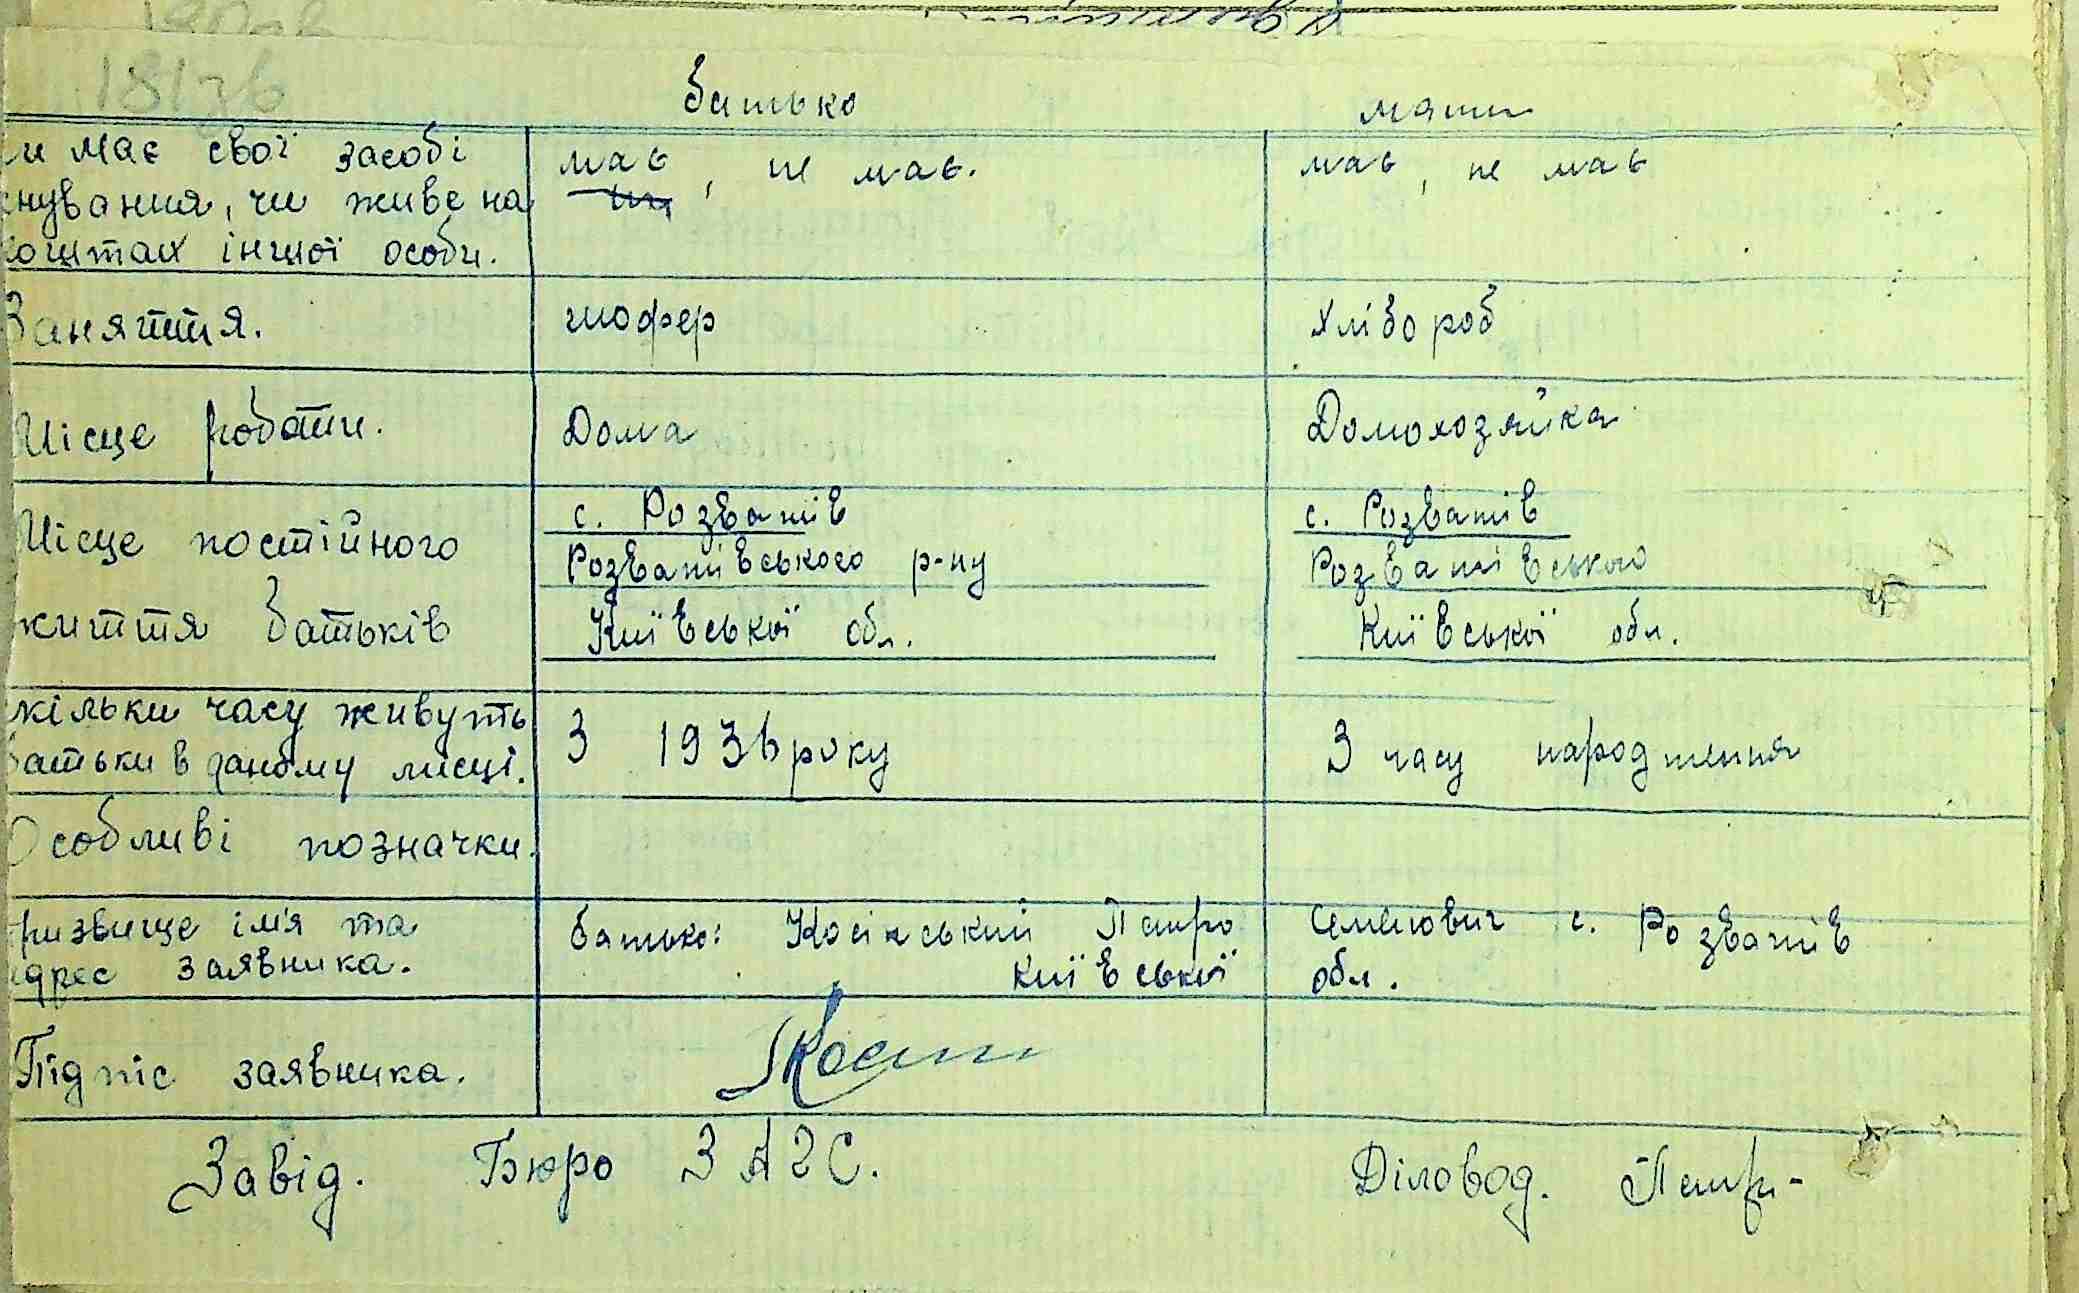 181зв
батько мати
чи має свої засобі
снування, чи живе на
коштах іншої особи.
має, не має.
має, не має
Заняття.
шофер
Хлібороб
Місце роботи.
Дома
Домохозяйка
Місце постійного
життя батьків
с. Розважів
Розважівського р-ну
Київської обл.
с. Розважів
Розважівського
Київської обл.
кільки часу живуть
батьки в даному місці.
З 1936 року
З часу народження
Особливі позначки.
призвище ім'я та
адрес заявника.
батько: Косінський Петро Семенович с. Розважів
Київської обл.
Підпіс заявника.
Завід. Бюро ЗАГС.
Діловод.